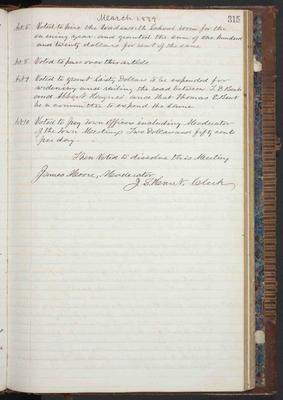 March 1879 315
Art 6 Voted to hire the Wadsworth School room for the
ensuing year and granted the sum of one hundred
and twenty dollars for rent of the same
Art 8 Voted to pass over this article
Art 9 Voted to grant Sixty Dollars to be expended for
widening and railing the road between
and and that Thomas
be a committee to expend the same
Art 10 Voted to pay Town Officers including Moderator
of the Town Meetings Two Dollars and fifty cents
per day.
Then Voted to dissolve this Meeting
James Moore, Moderator
Clerk